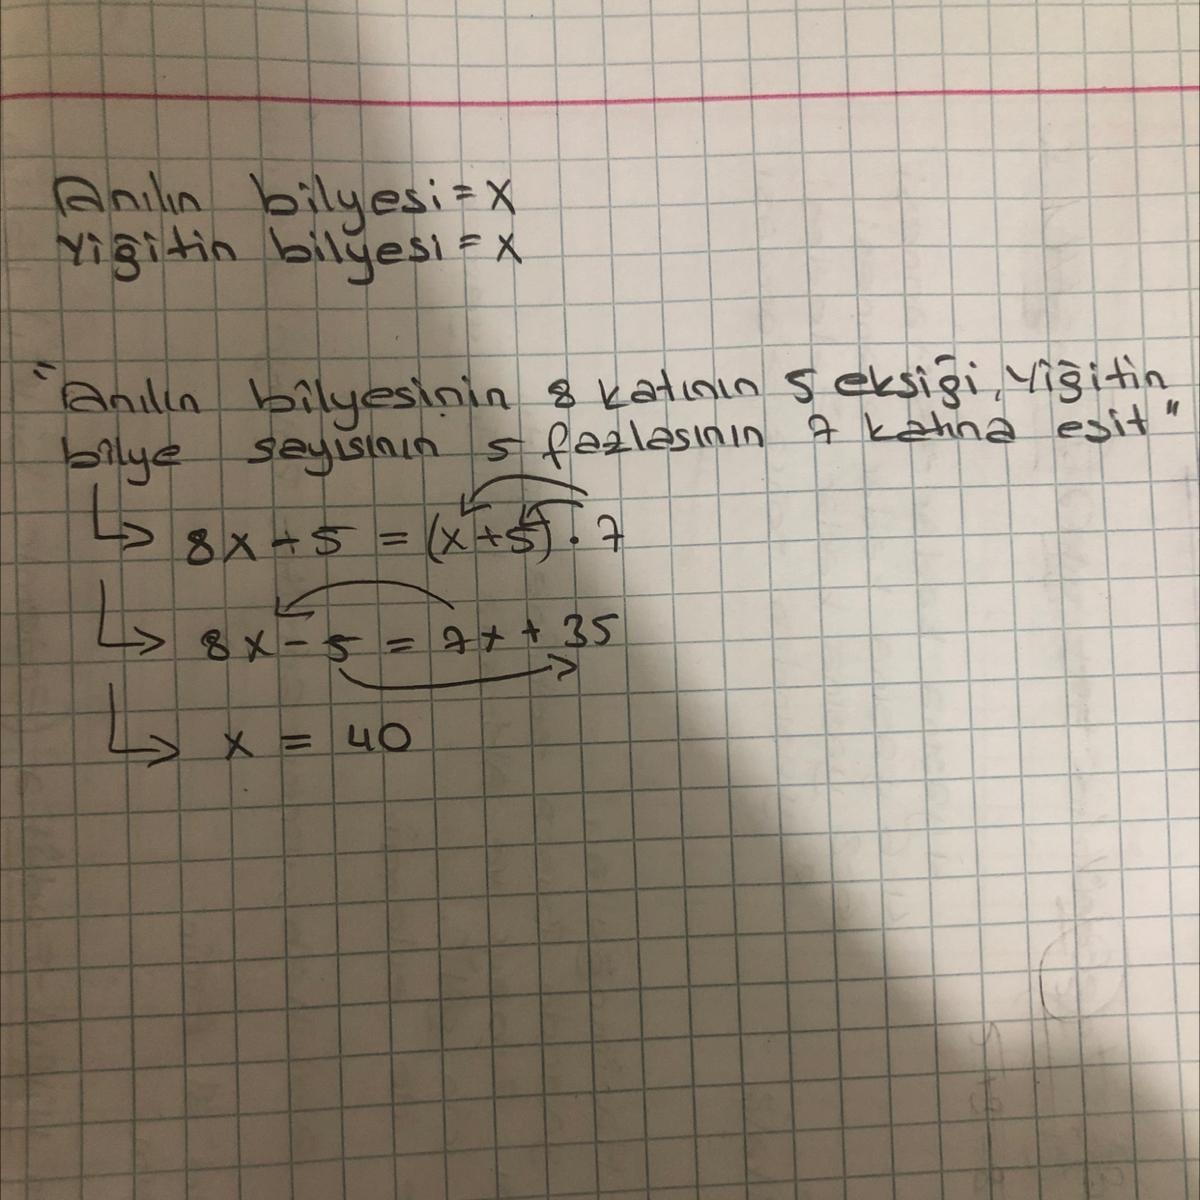 Anılın bilyesi = x
Yiğitin bilyesi = x
"Anılın bilyesinin 8 katının 5 eksiği, Yiğitin
bilye sayısının 5 fazlasının 7 katına esit"
8x + 5 = (x+5) . 7
8x - 5 = 7x + 35
x = 40